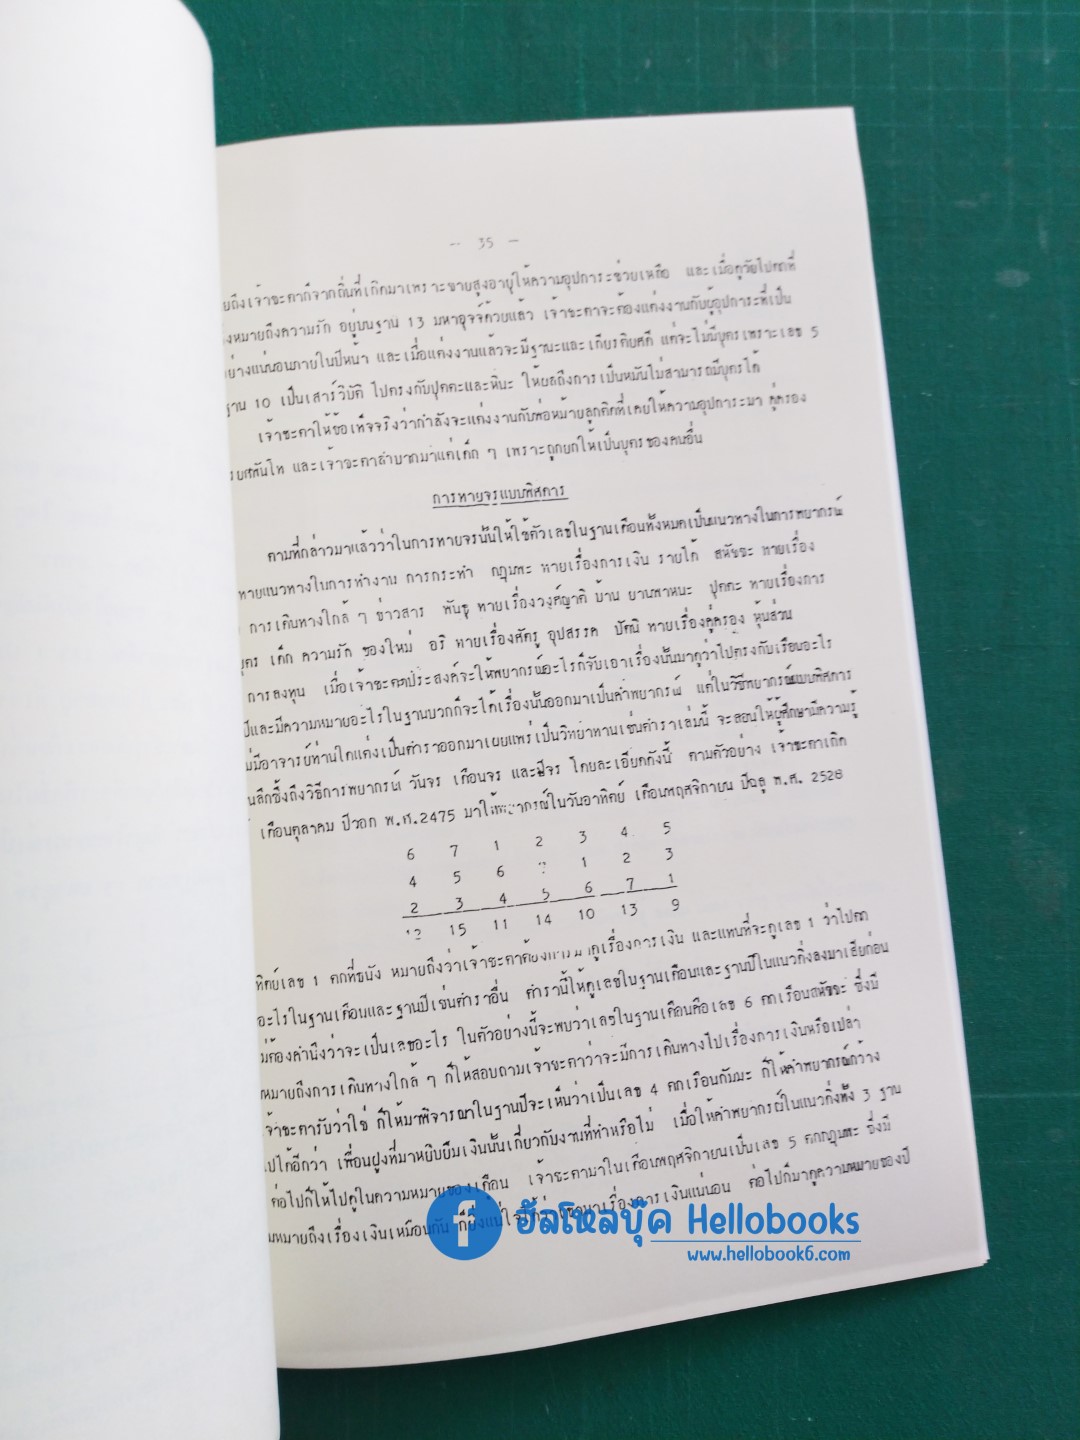 - 35 -
ยถึงเจ้าชะตาก็จากถิ่นที่เกิดมาเพราะชายสูงอายุให้ความอุปการะช่วยเหลือ และเมื่อดูวัยไปตกที่
งหมายถึงความรัก อยู่บนฐาน 13 มหาอุจจ์ด้วยแล้ว เจ้าชะตาจะต้องแต่งงานกับผู้อุปการะที่เป็น
ย่างแน่นอนภายในปีหน้า และเมื่อแต่งงานแล้วจะมีฐานะและเกียรติยศดี แต่จะไม่มีบุตรเพราะเลข 5
ฐาน 10 เป็นเสาร์วิบัติ ไปตรงกับปุตตะและหินะ ให้ผลถึงการเป็นหมันไม่สามารถมีบุตรได้
เจ้าชะตาให้ข้อเท็จจริงว่ากำลังจะแต่งงานกับพ่อหม้ายลูกติดที่เคยให้ความอุปการะมา คู่ครอง
และเจ้าชะตาลำบากมาแต่เด็ก ๆ เพราะถูกยกให้เป็นบุตรของคนอื่น
การทายจรแบบพิศดาร
ตามที่กล่าวมาแล้วว่าในการทายจรนั้นให้ใช้ตัวเลขในฐานเดือนทั้งหมดเป็นแนวทางในการพยากรณ์
ทายแนวทางในการทำงาน การกระทำ กฎุมพะ ทายเรื่องการเงิน รายได้ สหัชชะ ทายเรื่อง
การเดินทางใกล้ ๆ ข่าวสาร พันธุ ทายเรื่องวงศ์ญาติ บ้าน ยานพาหนะ ปุตตะ ทายเรื่องการ
บุตร เด็ก ความรัก ของใหม่ อริ ทายเรื่องศัตรู อุปสรรค ปัตนิ ทายเรื่องคู่ครอง หุ้นส่วน
การลงทุน เมื่อเจ้าชะตาประสงค์จะให้พยากรณ์อะไรก็จับเอาเรื่องนั้นมาดูว่าไปตรงกับเรือนอะไร
ปีและมีความหมายอะไรในฐานบวกก็จะได้เรื่องนั้นออกมาเป็นคำพยากรณ์ แต่ในวิธีพยากรณ์แบบพิศดาร
ม่มีอาจารย์ท่านใดแต่งเป็นตำราออกมาเผยแพร่เป็นวิทยาทานเช่นตำราเล่มนี้ จะสอนให้ผู้ศึกษามีความรู้
นลึกซึ้งถึงวิธีการพยากรณ์ วันจร เดือนจร และปีจร โดยละเอียดดังนี้ ตามตัวอย่าง เจ้าชะตาเกิด
เดือนตุลาคม ปีวอก พ.ศ.2475 มาให้พยากรณ์ในวันอาทิตย์ เดือนพฤศจิกายน ปีฉลู พ.ศ. 2528
6 7 1 2 3 4 5
4 5 6 1 2 3
2 3 4 5 6 7 1
12 15 11 14 10 13 9
ทิตย์เลข 1 ตกที่ธนัง หมายถึงว่าเจ้าชะตาต้องการมาดูเรื่องการเงิน และแทนที่จะดูเลข 1 ว่าไปตก
อะไรในฐานเดือนและฐานปีเช่นตำราอื่น ตำรานี้ให้ดูเลขในฐานเดือนและฐานปีในแนวดิ่งลงมาเสียก่อน
ม่ต้องคำนึงว่าจะเป็นเลขอะไร ในตัวอย่างนี้จะพบว่าเลขในฐานเดือนคือเลข 6 ตกเรือนสหัชชะ ซึ่งมี
หมายถึงการเดินทางใกล้ ๆ ก็ให้สอบถามเจ้าชะตาว่าจะมีการเดินทางไปเรื่องการเงินหรือเปล่า
จ้าชะตารับว่าใช่ ก็ให้มาพิจารณาในฐานปีจะเห็นว่าเป็นเลข 4 ตกเรือนกัมมะ ก็ให้คำพยากรณ์กว้าง
ปได้อีกว่า เพื่อนฝูงที่มาหยิบยืมเงินนั้นเกี่ยวกับงานที่ทำหรือไม่ เมื่อให้คำพยากรณ์ในแนวดิ่งทั้ง 3 ฐาน
ต่อไปก็ให้ไปดูในความหมายของเดือน เจ้าชะตามาในเดือนพฤศจิกายนเป็นเลข 5 ตกกฎุมพะ ซึ่งมี
มหมายถึงเรื่องเงินเหมือนกัน ก็ยิ่งแน่ใจ เรื่องการเงินแน่นอน ต่อไปก็มาดูความหมายของปี
ฮัลโหลบุ๊ค Hellobooks
www.hellobook6.com